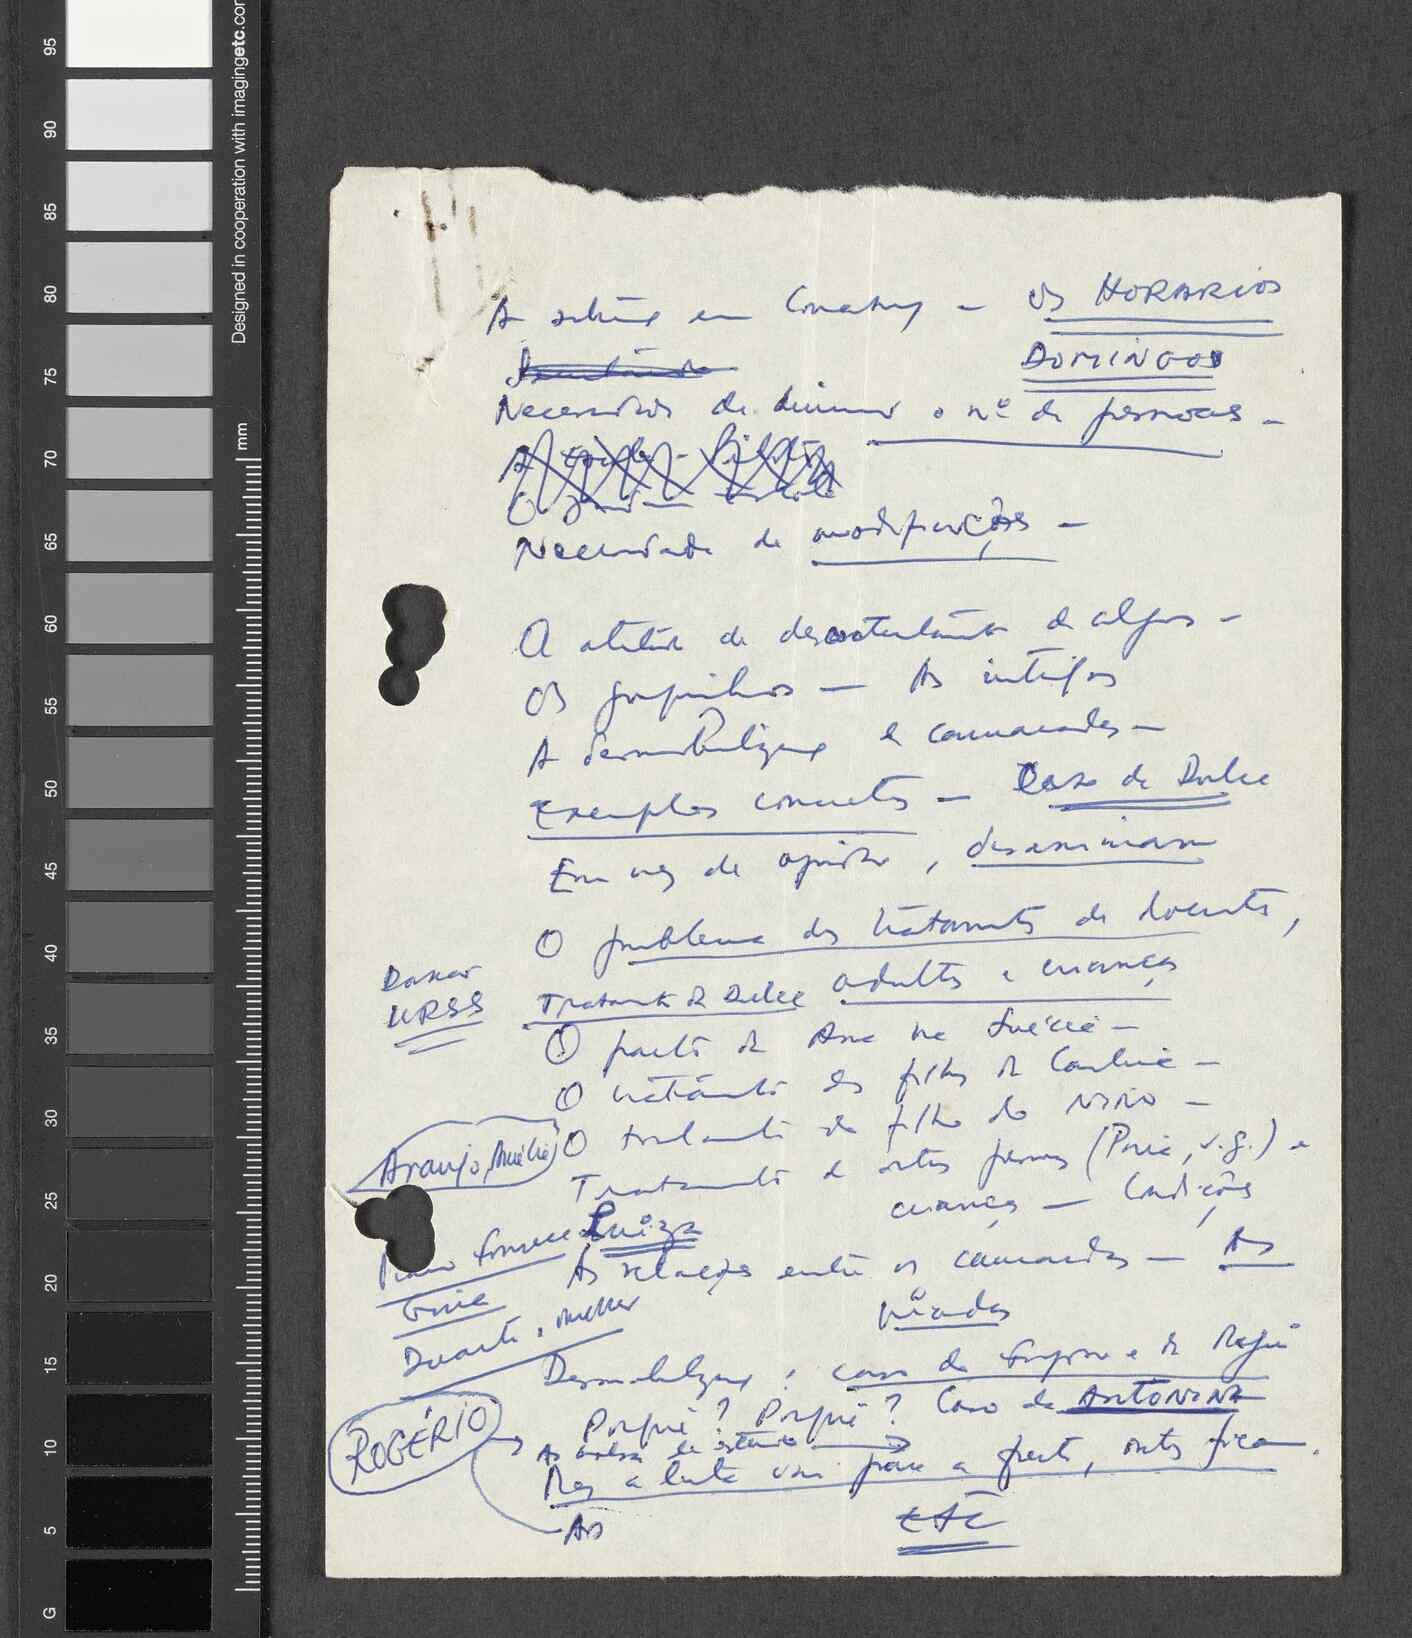 95
90
85
80
75
70
65
60
55
50
45
40
35
30
25
20
15
10
5
G
Designed in cooperation with imagingetc.com
mm
A em Conakry – Os HORARIOS
DOMINGOS
Necessidade de diminuir o nº de pessoas –
Necessidade de modificações –
A atitude de descontentamento de alguns –
Os grupinhos – As intrigas
A desmobilização de camaradas –
Exemplos concretos – Caso de Dulce
Em vez de ajudar, desanimam
O problema do tratamento de doentes,
adultos e crianças
Dakar
URSS
Tratamento de Dulce
O parto de Ana na Suécia –
O tratamento do filho de –
O tratamento do filho do NINO –
Araujo, Amélia
Tratamento de outras pessoas ( , v.g.) e
crianças – Condições
Luiza
As relações entre os camaradas – As
piadas
Duarte, mulher
Desmobilização: caso de e de
Porquê? Porquê? Caso de ANTONINA
ROGÉRIO
As bolsas de estudo
Mas a luta vai para a frente, outros ficam.
As
ETC